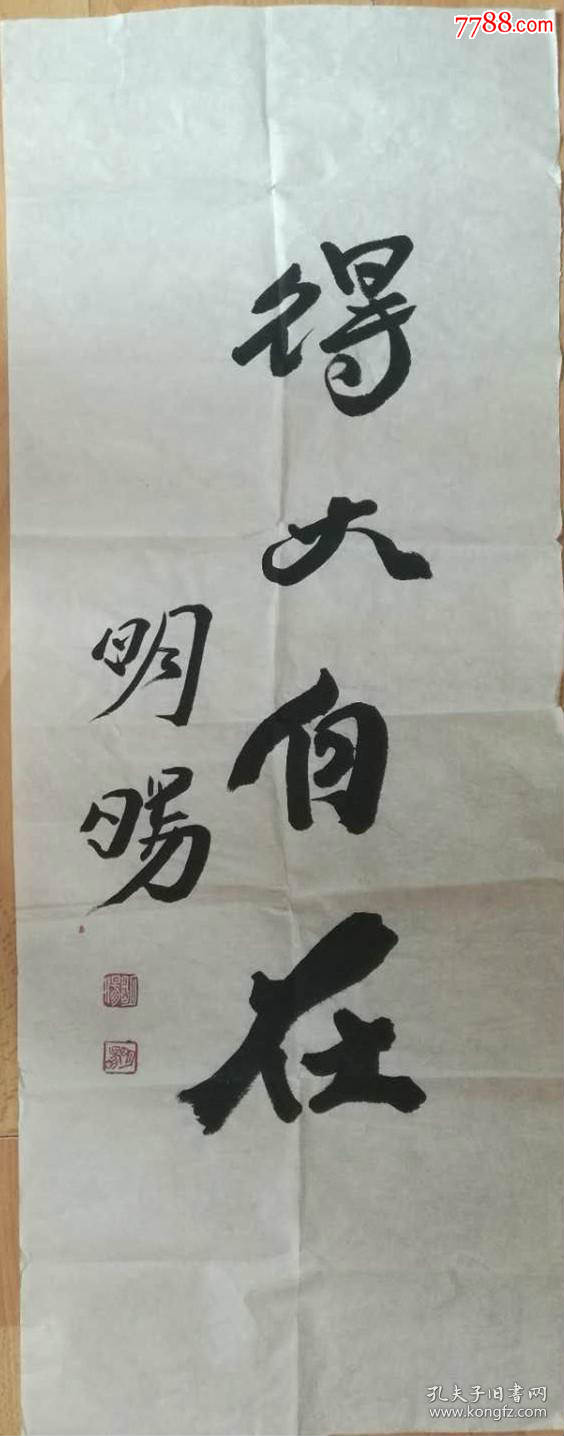 7788.com
得大自在
明暘
孔夫子旧書网
www.kongfz.com